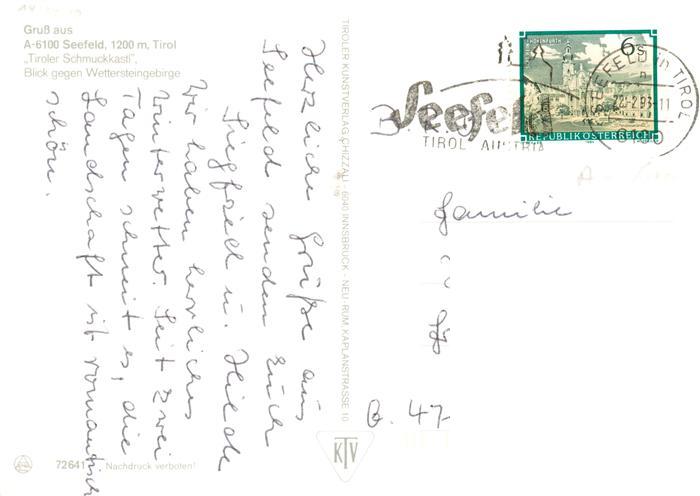 Gruß aus
A-6100 Seefeld, 1200 m, Tirol
„Tiroler Schmuckkastl",
Blick gegen Wettersteingebirge
Herzliche Grüße aus
Seefeld senden Euch
Siegfried u. Hilde
Wir haben herrliches
Winterwetter. Seit zwei
Tagen schneit es, die
Landschaft ist romantisch
schön.
72641
Nachdruck verboten!
TIROLER KUNSTVERLAG CHIZZALI - 6040 INNSBRUCK - NEU-RUM, KAPLANSTRASSE 10
KTV
Seefeld
TIROL AUSTRIA
6s
REPUBLIK ÖSTERREICH
SEEFELD in TIROL
6100
Familie
47